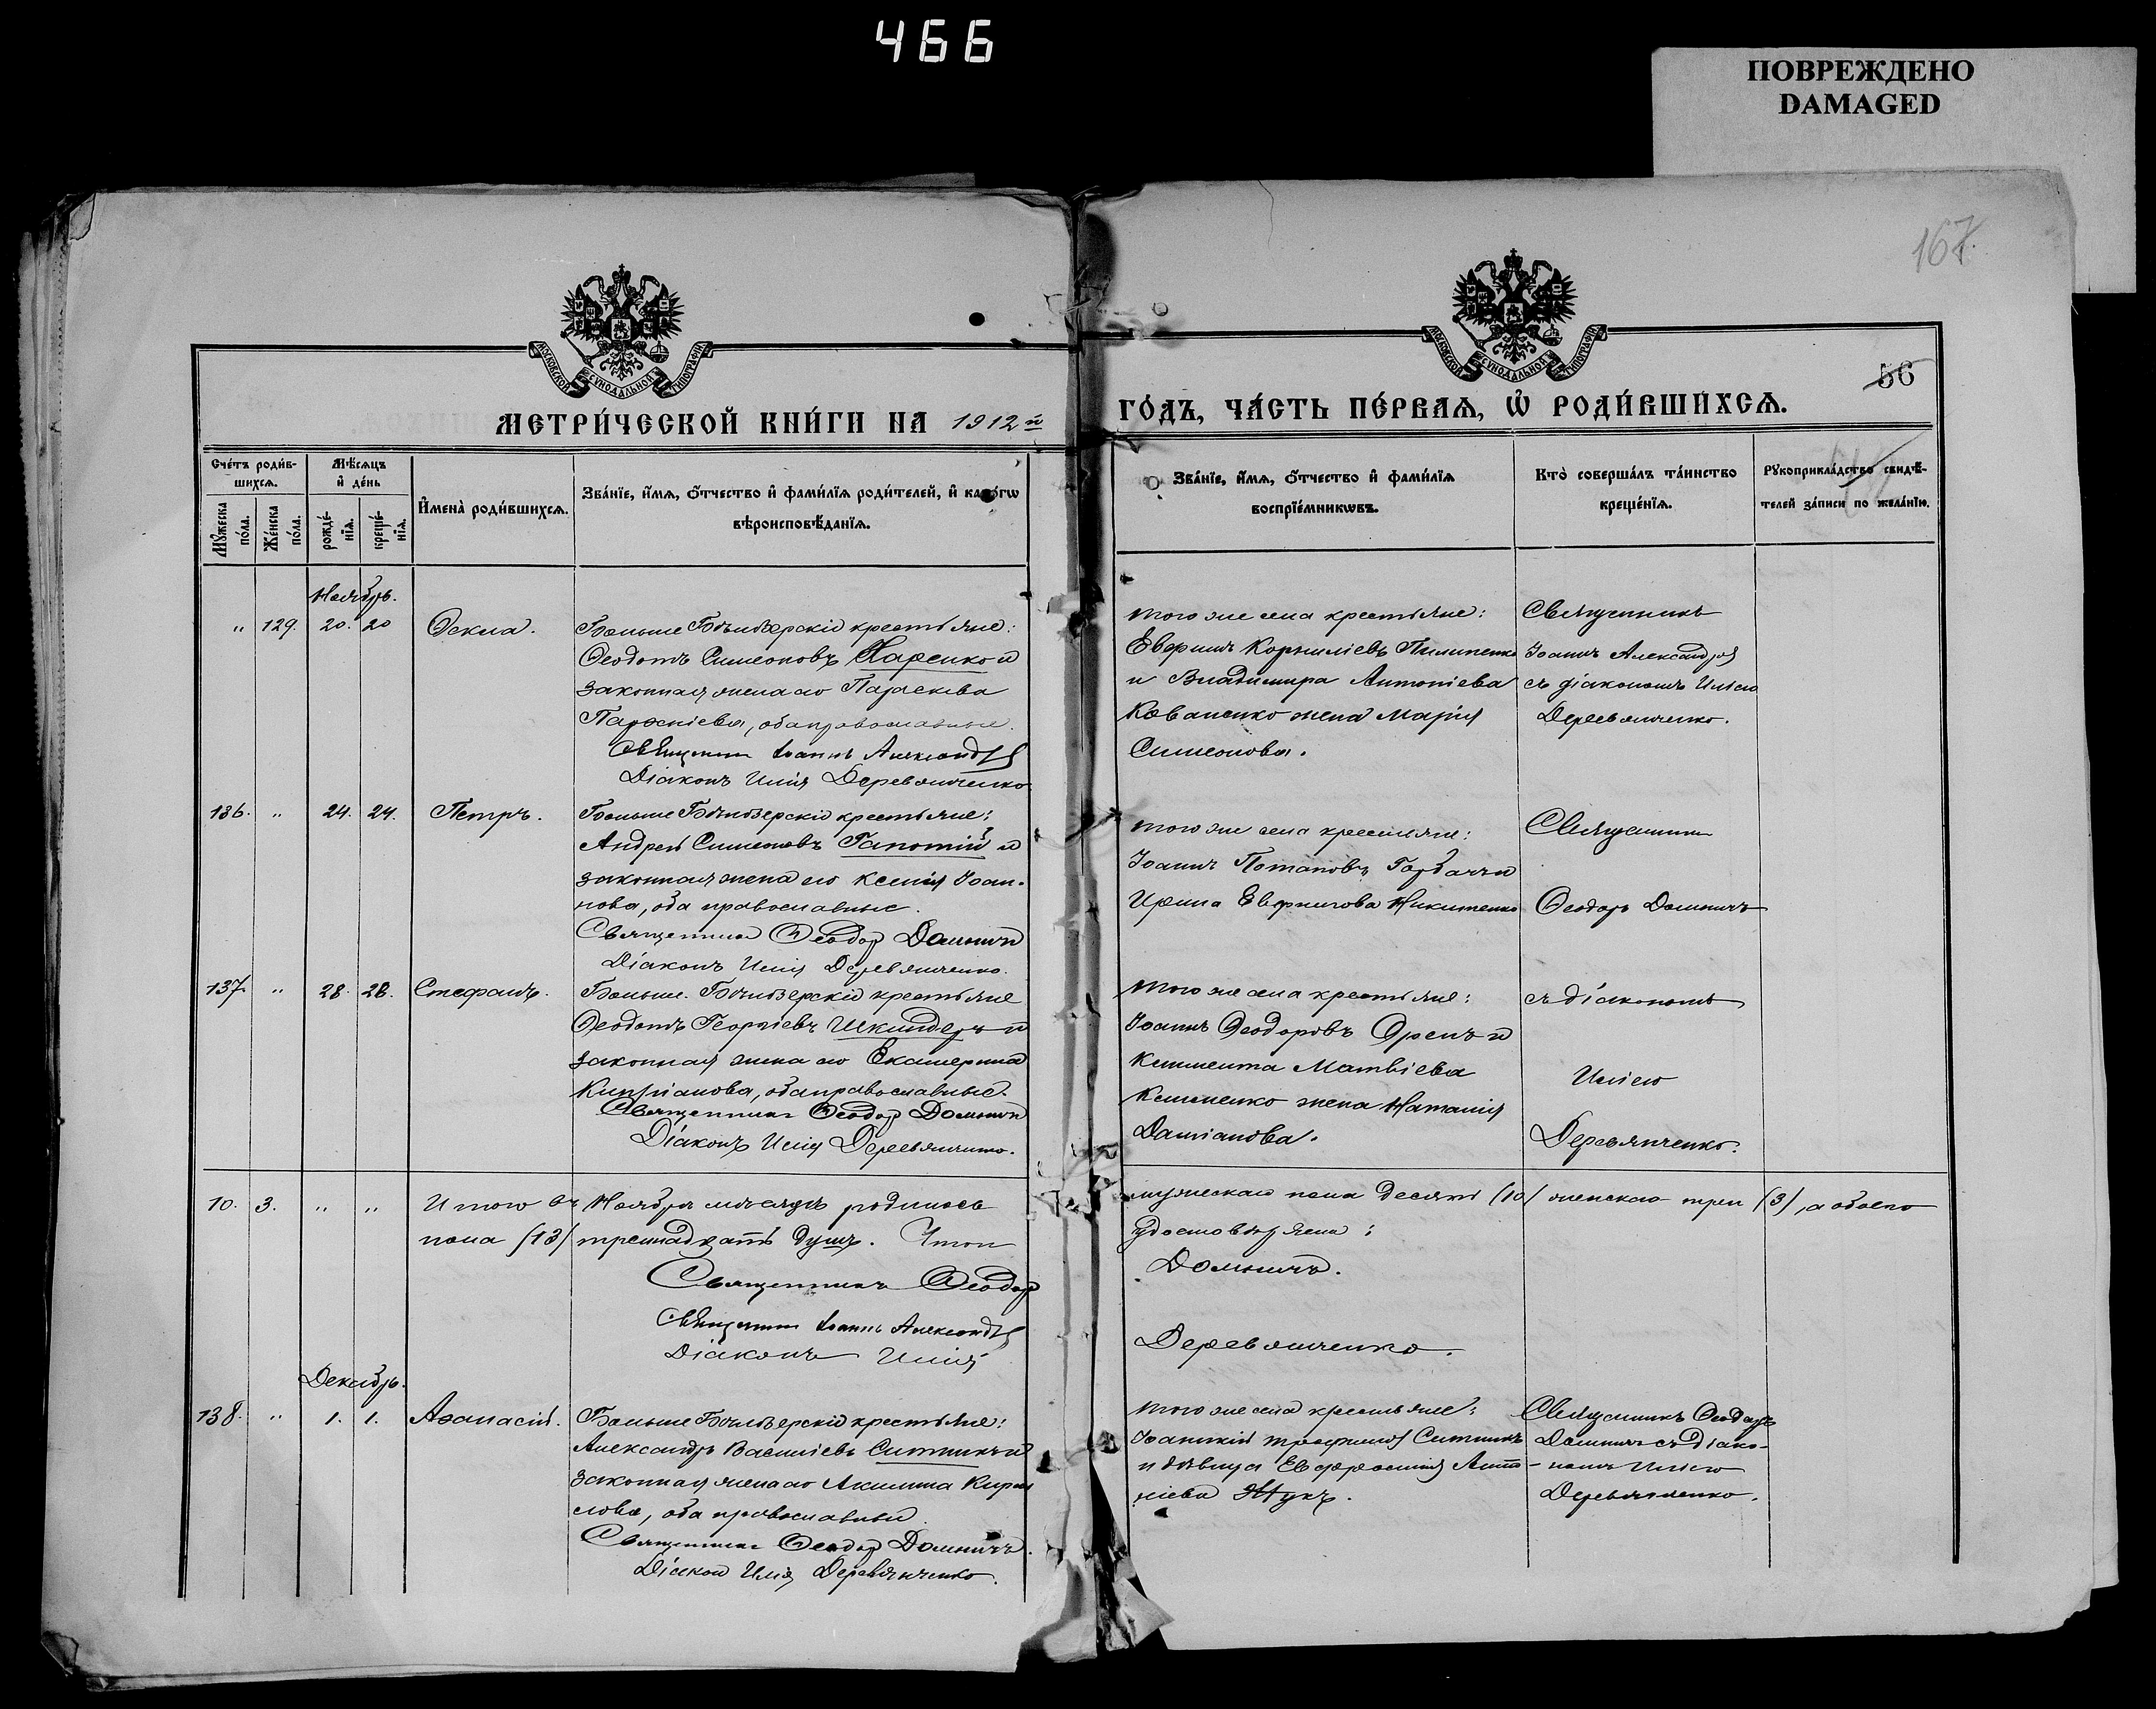 466
ПОВРЕЖДЕНО
DAMAGED
167.
56
МОСКОВСКОЙ СѴНОДАЛЬНОЙ ТИПОГРАФІИ
МОСКОВСКОЙ СѴНОДАЛЬНОЙ ТИПОГРАФІИ
МЕТРИ́ЧЕСКОЙ КНИ́ГИ НА 1912й
ГО́ДЪ, ЧА́СТЬ ПЕ́РВАЯ, Ѡ҆ РОДИ́ВШИХСЯ.
Сче́тъ роди́в-
шихся.
Мꙋ́жеска по́ла.
Же́нска по́ла.
Мѣ́сяцъ
и҆ де́нь
рожде́-
нїя.
креще́-
нїя.
И҆мена̀ роди́вшихся.
Зва́нїе, и҆́мя, ѻ҆́тчество и҆ фами́лїя роди́телей, и҆ како́гѡ
вѣроисповѣ́данїя.
Зва́нїе, и҆́мя, ѻ҆́тчество и҆ фами́лїя
воспрїе́мникѡвъ.
Кто̀ соверша́лъ та́инство
креще́нїя.
Рꙋкоприкла́дство свидѣ́-
телей за́писи по жела́нїю.
Ноябрь.
" 129. 20. 20 Ѳекла.
Больше Бѣлозерскіе крестьяне:
Ѳеодотъ Симеоновъ Харенко и
законная жена его Параскева
Парѳеніева, оба православные.
Священникъ Іоаннъ Александровъ
Діаконъ Илія Деревянченко
того же села крестьяне:
Евфимъ Корниліевъ Пилипенко
и Владимира Антоніева
Коваленко жена Марія
Симеонова.
Священникъ
Іоаннъ Александровъ
съ діакономъ Иліею
Деревянченко.
136. " 24. 24. Петръ.
Больше Бѣлозерскіе крестьяне:
Андрей Симеоновъ Гапотій и
законная жена его Ксенія Іоан-
нова, оба православные.
Священникъ Ѳеодоръ Домничъ
Діаконъ Илія Деревянченко.
того же села крестьяне:
Іоаннъ Потаповъ Горбачъ и
Ирина Евфимова Никитенко
Священникъ
Ѳеодоръ Домничъ
137. " 28. 28. Стефанъ.
Больше Бѣлозерскіе крестьяне
Ѳеодотъ Георгіевъ Шкиндеръ и
законная жена его Екатерина
Кипріанова, оба православные.
Священникъ Ѳеодоръ Домничъ
Діаконъ Илія Деревянченко.
того же села крестьяне:
Іоаннъ Ѳеодоровъ Орелъ и
Климента Матвіева
Клименко жена Наталія
Даміанова.
съ діакономъ
Иліею
Деревянченко.
10. 3. " " Итого въ Ноябрѣ мѣсяцѣ родилось мужескаго пола десять (10) женскаго три (3), а обоего
пола (13) тринадцать душъ. Что и удостовѣряемъ:
Священникъ Ѳеодоръ Домничъ.
Священникъ Іоаннъ Александровъ
Діаконъ Илія Деревянченко.
Декабрь.
138. " 1. 1. Аѳанасій.
Больше Бѣлозерскіе крестьяне:
Александръ Василіевъ Ситникъ и
законная жена его Акилина Кирил-
лова, оба православные.
Священникъ Ѳеодоръ Домничъ.
Діаконъ Илія Деревянченко.
того же села крестьяне:
Іоанникій Трофимовъ Ситникъ
и дѣвица Евфросинія Анто-
ніева Жукъ.
Священникъ Ѳеодоръ
Домничъ съ діако-
номъ Иліею
Деревянченко.